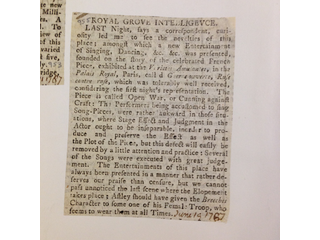 ROYAL GROVE INTELLIGENCE.
LAST Night, says a correspondent, curi-
osity led me to see the novelties of this
place; amongst which a new Entertainment
of Singing, Dancing, &c. &c. was presented,
founded on the story of the celebrated French
Piece, exhibited at the Varietes Amusantes, in the
Palais Royal, Paris, call'd Guerre ouverte, Ruse
contre ruse, which was tolerably well received,
considering the first night's representation. The
Piece is called Open War, or Cunning against
Craft: The Performers being accustomed to sing
Song-Pieces, were rather aukward in those situ-
ations, where Stage Effect and Judgment in the
Actor ought to be inseparable, in order to pro-
duce and preserve the Effect as well as
the Plot of the Piece, but this defect will easily be
removed by a little attention and practice: Several
of the Songs were executed with great judge-
ment. The Entertainments of this place have
always been presented in a manner that rather de-
serves our praise than censure, but we cannot
pass unnoticed the last scene where the Elopement
takes place; Astley should have given the Breeches
Character to some one of his Female Troop, who
seems to wear them at all Times. June 14 1787
new
Milli-
ces. A
To
view of
of
this
idge,